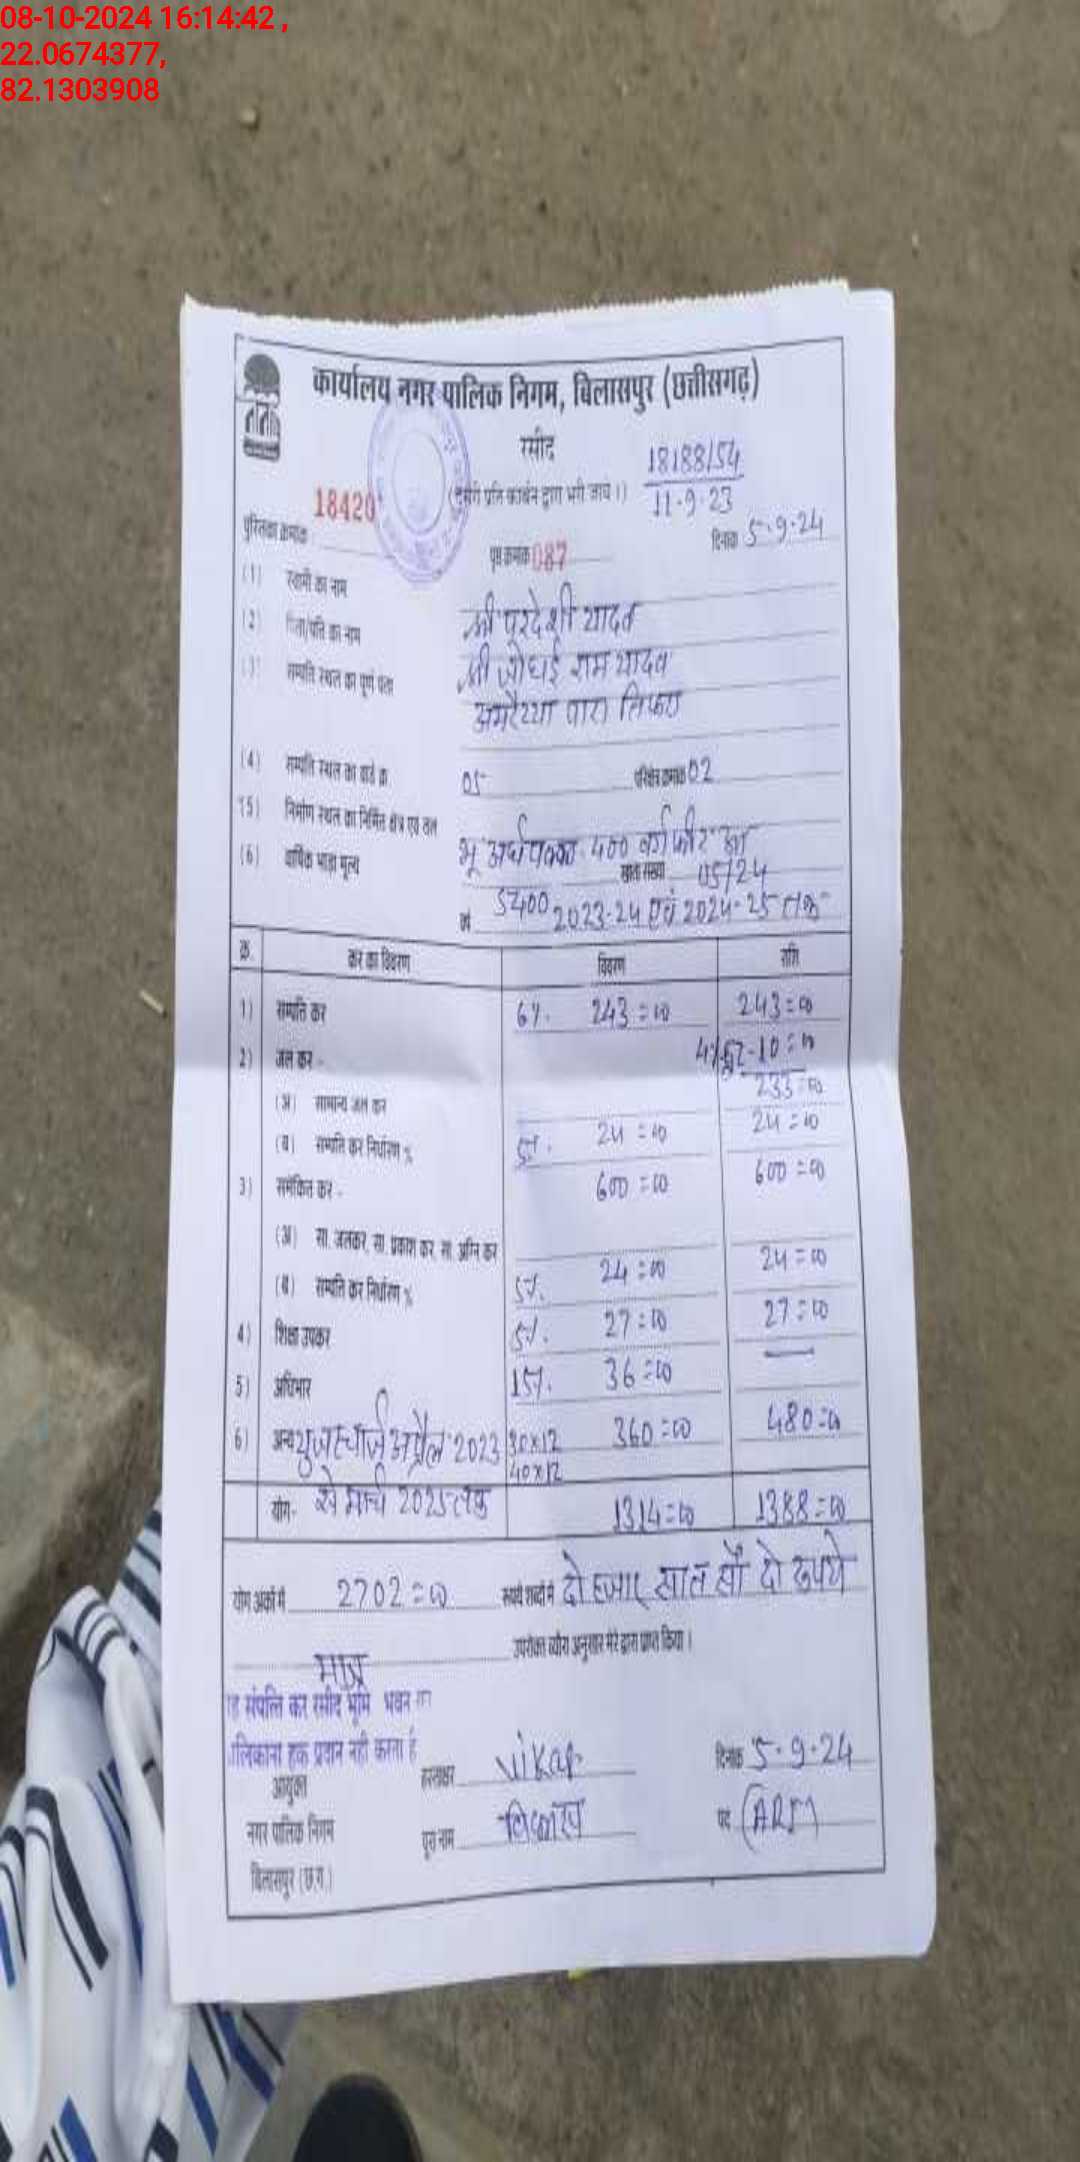 08-10-2024 16:14:42 ,
22.0674377,
82.1303908
कार्यालय नगर पालिक निगम, बिलासपुर (छत्तीसगढ़)
रसीद
18188/54
11.9.23
(दूसरी प्रति कार्बन द्वारा भरी जाय।)
पुस्तिका क्रमांक 18420
पृष्ठ क्रमांक 087
दिनांक 5.9.24
(1) स्वामी का नाम श्री परदेशी यादव
(2) पिता/पति का नाम श्री जोधई राम यादव
(3) सम्पत्ति स्थल का पूर्ण पता अमरैय्या पारा तिफरा
(4) सम्पत्ति स्थल का वार्ड क्र. 05 परिक्षेत्र क्रमांक 02
(5) निर्माण स्थल का निर्मित क्षेत्र एवं तल भू अर्धपक्का 400 वर्गफीट
(6) वार्षिक भाड़ा मूल्य 5400 खाता संख्या 05/24
वर्ष 2023-24 एवं 2024-25 तक
क्र. कर का विवरण विवरण राशि
1) सम्पत्ति कर 6%. 243=00 243=00
2) जल कर - 4% -10=00
233=00
(अ) सामान्य जल कर
(ब) सम्पत्ति कर निर्धारण % 5%. 24=00 24=00
3) समेकित कर - 600=00 600=00
(अ) सा. जलकर, सा. प्रकाश कर, सा. अग्नि कर
(ब) सम्पत्ति कर निर्धारण % 5%. 24=00 24=00
4) शिक्षा उपकर 5%. 27=00 27=00
5) अधिभार 15%. 36=00 —
6) अन्य युजरचार्ज अप्रैल 2023 30x12 360=00 480=00
40x12
योग- से मार्च 2025 तक 1314=00 1388=00
योग अंकों में 2702=00 रूपये शब्दों में दो हजार सात सौ दो रुपये
मात्र उपरोक्त ब्यौरा अनुसार मेरे द्वारा प्राप्त किया।
संपत्ति कर रसीद भूमि भवन का
हक प्रदान नही करता है
आयुक्त
नगर पालिक निगम
बिलासपुर (छ.ग.)
हस्ताक्षर Vikas दिनांक 5.9.24
पूरा नाम विकास पद (ARI)